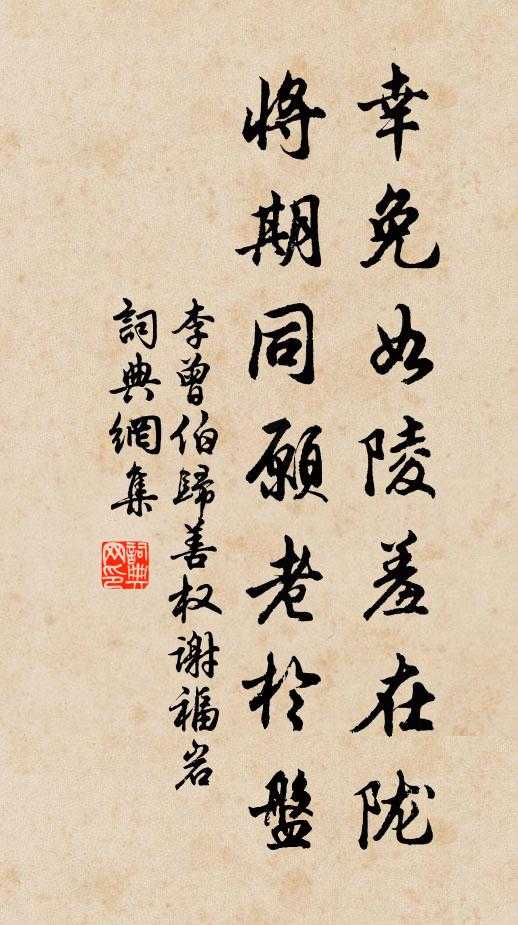 幸免如陵羞在陇
将期同願老於盤
李曾伯歸善权谢福岩
詞典網集
詞典网印